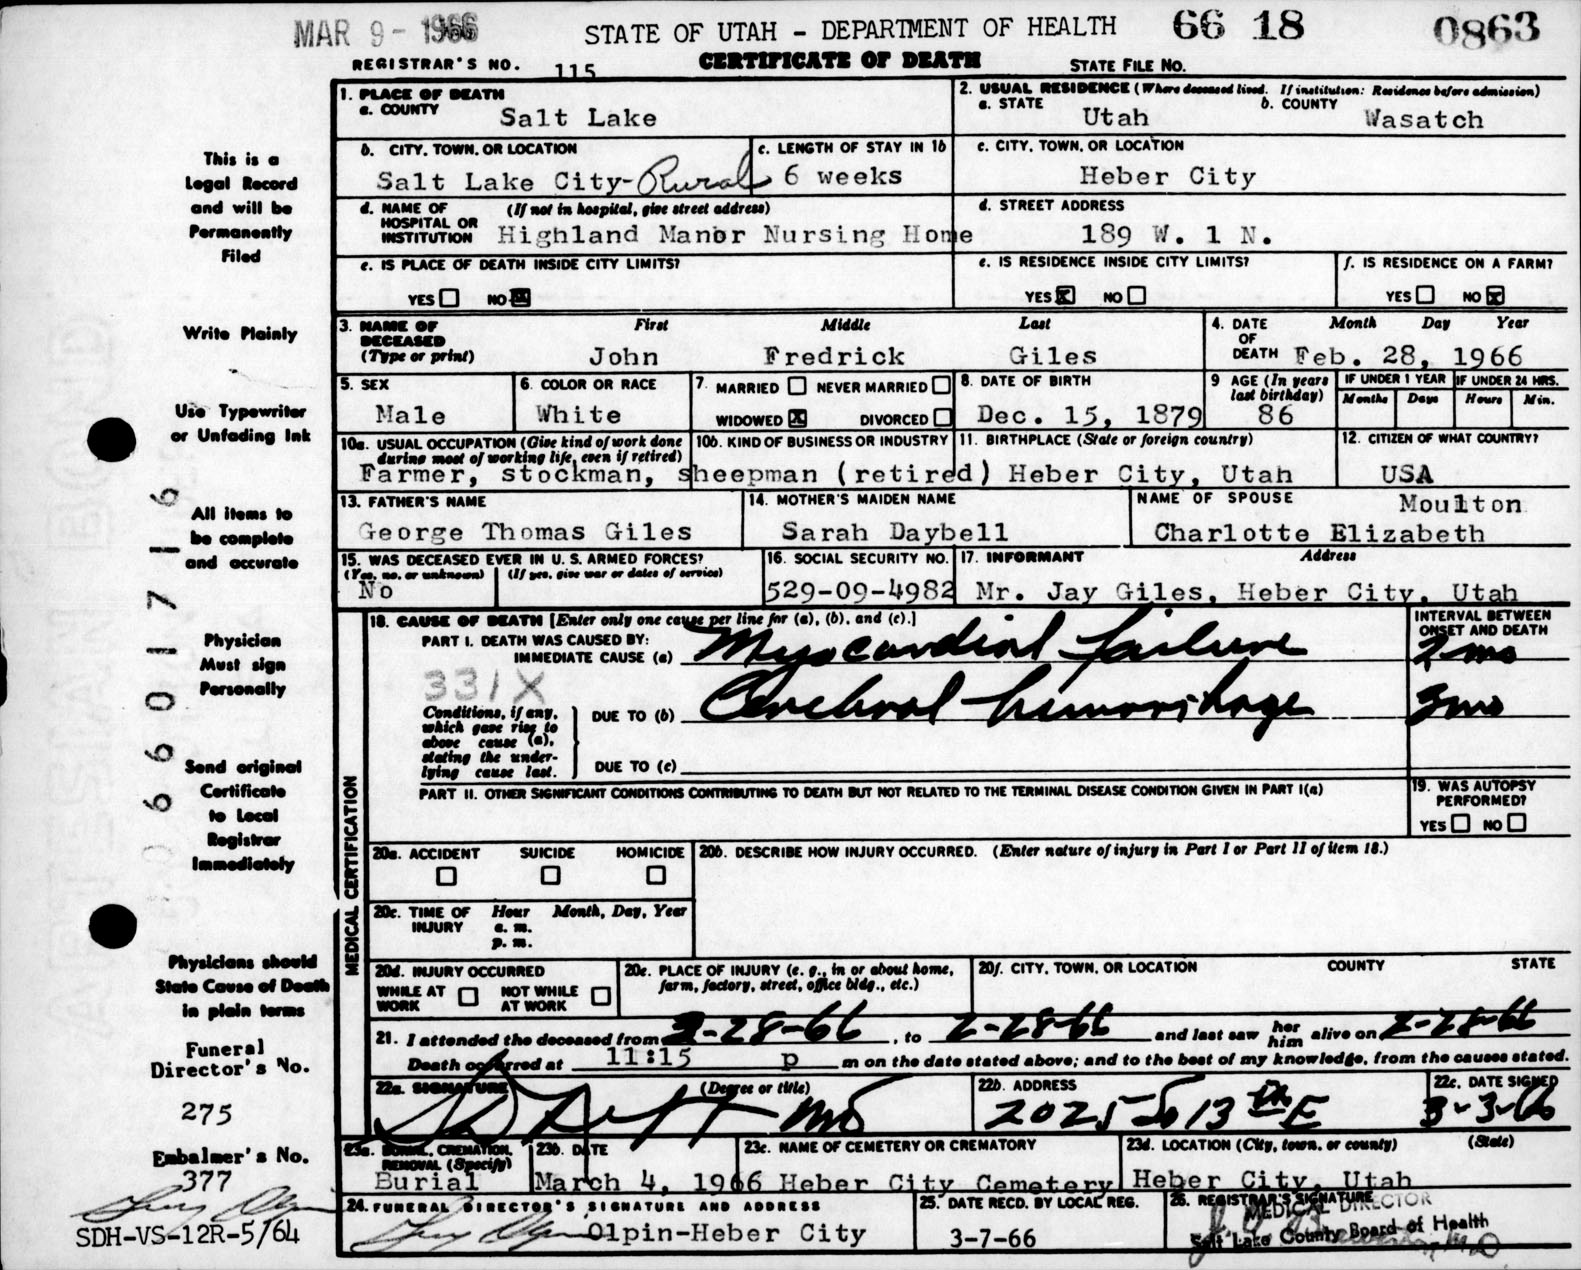 MAR 9 - 1966
STATE OF UTAH - DEPARTMENT OF HEALTH 66 18 0863
REGISTRAR'S NO. 115 CERTIFICATE OF DEATH STATE FILE NO.
This is a
Legal Record
and will be
Permanently
Filed
Write Plainly
Use Typewriter
or Unfading Ink
All items to
be complete
and accurate
Physician
Must sign
Personally
Send original
Certificate
to Local
Registrar
Immediately
Physicians should
State Cause of Death
in plain terms
Funeral
Director's No.
275
Embalmer's No.
377
SDH-VS-12R-5/64
66017 16
1. PLACE OF DEATH
a. COUNTY Salt Lake
2. USUAL RESIDENCE (Where deceased lived. If institution: Residence before admission)
a. STATE Utah b. COUNTY Wasatch
b. CITY, TOWN, OR LOCATION
Salt Lake City-Rural
c. LENGTH OF STAY IN 1b
6 weeks
c. CITY, TOWN, OR LOCATION
Heber City
d. NAME OF HOSPITAL OR INSTITUTION (If not in hospital, give street address)
Highland Manor Nursing Home
d. STREET ADDRESS
189 W. 1 N.
e. IS PLACE OF DEATH INSIDE CITY LIMITS?
YES NO X
e. IS RESIDENCE INSIDE CITY LIMITS?
YES X NO
f. IS RESIDENCE ON A FARM?
YES NO X
3. NAME OF DECEASED (Type or print)
First Middle Last
John Fredrick Giles
4. DATE OF DEATH Month Day Year
Feb. 28, 1966
5. SEX
Male
6. COLOR OR RACE
White
7. MARRIED NEVER MARRIED
WIDOWED X DIVORCED
8. DATE OF BIRTH
Dec. 15, 1879
9 AGE (In years last birthday)
86
IF UNDER 1 YEAR IF UNDER 24 HRS.
Months Days Hours Min.
10a. USUAL OCCUPATION (Give kind of work done during most of working life, even if retired)
10b. KIND OF BUSINESS OR INDUSTRY
Farmer, stockman, sheepman (retired)
11. BIRTHPLACE (State or foreign country)
Heber City, Utah
12. CITIZEN OF WHAT COUNTRY?
USA
13. FATHER'S NAME
George Thomas Giles
14. MOTHER'S MAIDEN NAME
Sarah Daybell
NAME OF SPOUSE Moulton
Charlotte Elizabeth
15. WAS DECEASED EVER IN U. S. ARMED FORCES?
(Yes, no, or unknown) (If yes, give war or dates of service)
No
16. SOCIAL SECURITY NO.
529-09-4982
17. INFORMANT Address
Mr. Jay Giles, Heber City, Utah
MEDICAL CERTIFICATION
18. CAUSE OF DEATH [Enter only one cause per line for (a), (b), and (c).]
PART I. DEATH WAS CAUSED BY:
IMMEDIATE CAUSE (a) Myocardial failure
INTERVAL BETWEEN ONSET AND DEATH
2 mo
331X
Conditions, if any, which gave rise to above cause (a), stating the underlying cause last.
DUE TO (b) Cerebral hemorrhage
3mo
DUE TO (c)
PART II. OTHER SIGNIFICANT CONDITIONS CONTRIBUTING TO DEATH BUT NOT RELATED TO THE TERMINAL DISEASE CONDITION GIVEN IN PART I(a)
19. WAS AUTOPSY PERFORMED?
YES NO
20a. ACCIDENT SUICIDE HOMICIDE
20b. DESCRIBE HOW INJURY OCCURRED. (Enter nature of injury in Part I or Part II of item 18.)
20c. TIME OF INJURY Hour Month, Day, Year
a. m.
p. m.
20d. INJURY OCCURRED
WHILE AT WORK NOT WHILE AT WORK
20e. PLACE OF INJURY (e. g., in or about home, farm, factory, street, office bldg., etc.)
20f. CITY, TOWN, OR LOCATION COUNTY STATE
21. I attended the deceased from 2-28-66, to 2-28-66 and last saw her him alive on 2-28-66
Death occurred at 11:15 p m on the date stated above; and to the best of my knowledge, from the causes stated.
22a. SIGNATURE (Degree or title)
MD
22b. ADDRESS
2025 So 13th E
22c. DATE SIGNED
3-3-66
23a. BURIAL, CREMATION, REMOVAL (Specify)
Burial
23b. DATE
March 4, 1966
23c. NAME OF CEMETERY OR CREMATORY
Heber City Cemetery
23d. LOCATION (City, town, or county) (State)
Heber City, Utah
24. FUNERAL DIRECTOR'S SIGNATURE AND ADDRESS
Olpin-Heber City
25. DATE RECD. BY LOCAL REG.
3-7-66
26. REGISTRAR'S SIGNATURE
MEDICAL DIRECTOR
Salt Lake County Board of Health